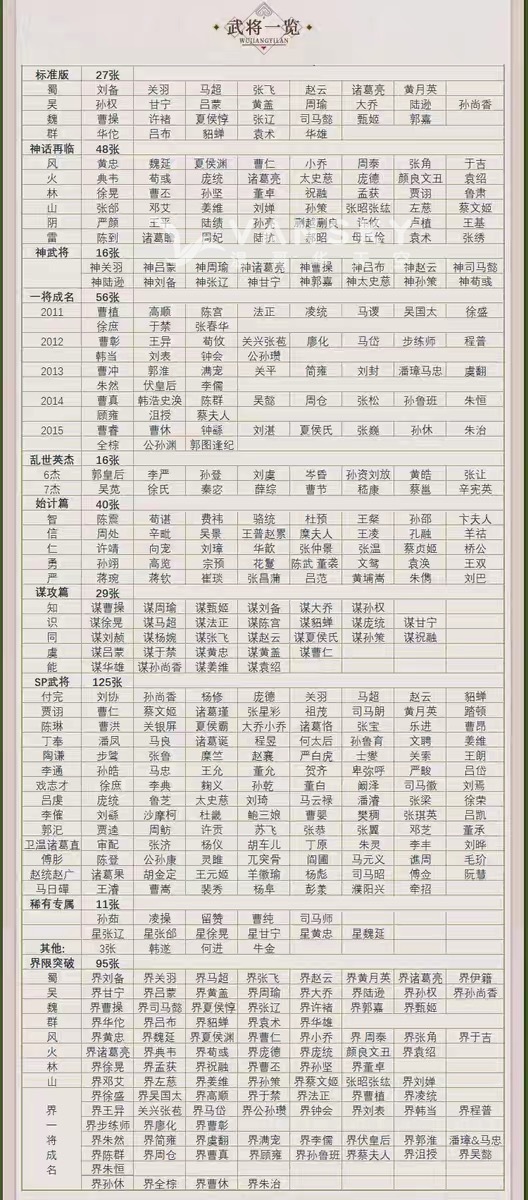 武将一览
WUJIANGYILAN
标准版 27张
蜀 刘备 关羽 马超 张飞 赵云 诸葛亮 黄月英
吴 孙权 甘宁 吕蒙 黄盖 周瑜 大乔 陆逊 孙尚香
魏 曹操 许褚 夏侯惇 张辽 司马懿 甄姬 郭嘉
群 华佗 吕布 貂蝉 袁术 华雄
神话再临 48张
风 黄忠 魏延 夏侯渊 曹仁 小乔 周泰 张角 于吉
火 典韦 荀彧 庞统 诸葛亮 太史慈 庞德 颜良文丑 袁绍
林 徐晃 曹丕 孙坚 董卓 祝融 孟获 贾诩 鲁肃
山 张郃 邓艾 姜维 刘婵 孙策 张昭张纮 左慈 蔡文姬
阴 严颜 王平 陆绩 孙亮 蒯越蒯良 许攸 卢植 王基
雷 陈到 诸葛瞻 周妃 陆抗 郝昭 毌丘俭 袁术 张绣
神武将 16张
神关羽 神吕蒙 神周瑜 神诸葛亮 神曹操 神吕布 神赵云 神司马懿
神陆逊 神刘备 神张辽 神甘宁 神郭嘉 神太史慈 神孙策 神荀彧
一将成名 56张
2011 曹植 高顺 陈宫 法正 凌统 马谡 吴国太 徐盛
徐庶 于禁 张春华
2012 曹彰 王异 荀攸 关兴张苞 廖化 马岱 步练师 程普
韩当 刘表 钟会 公孙瓒
2013 曹冲 郭淮 满宠 关平 简雍 刘封 潘璋马忠 虞翻
朱然 伏皇后 李儒
2014 曹真 韩浩史涣 陈群 吴懿 周仓 张松 孙鲁班 朱恒
顾雍 沮授 蔡夫人
2015 曹睿 曹休 钟繇 刘湛 夏侯氏 张嶷 孙休 朱治
全棕 公孙渊 郭图逢纪
乱世英杰 16张
6杰 郭皇后 李严 孙登 刘虞 岑昏 孙资刘放 黄皓 张让
7杰 吴苋 徐氏 秦宓 薛综 曹节 嵇康 蔡邕 辛宪英
始计篇 40张
智 陈震 荀谌 费祎 骆统 杜预 王粲 孙邵 卞夫人
信 周处 辛毗 吴景 王普赵累 糜夫人 王凌 孔融 羊祜
仁 许靖 向宠 刘璋 华歆 张仲景 张温 蔡贞姬 桥公
勇 孙翊 高览 宗预 花鬘 陈武 董袭 文鸳 袁涣 王双
严 蒋琬 蒋钦 崔琰 张昌蒲 吕范 皇甫嵩 朱儁 刘巴
谋攻篇 29张
知 谋曹操 谋周瑜 谋甄姬 谋刘备 谋大乔 谋孙权
识 谋徐晃 谋马超 谋法正 谋陈宫 谋貂蝉 谋庞统 谋甘宁
同 谋刘赪 谋杨婉 谋张飞 谋赵云 谋夏侯氏 谋孙策 谋祝融
虞 谋吕蒙 谋于禁 谋黄忠 谋黄盖 谋曹仁
能 谋华雄 谋孙尚香 谋姜维 谋袁绍
SP武将 125张
付完 刘协 孙尚香 杨修 庞德 关羽 马超 赵云 貂蝉
贾诩 曹仁 蔡文姬 诸葛瑾 张星彩 祖茂 司马朗 黄月英 踏顿
陈琳 曹洪 关银屏 夏侯霸 大乔小乔 诸葛恪 张宝 乐进 曹昂
丁奉 潘凤 马良 诸葛诞 程昱 何太后 孙鲁育 文聘 姜维
陶谦 步骘 张鲁 糜竺 赵襄 严白虎 士燮 关索 王朗
李通 孙皓 马忠 王允 董允 贺齐 卑弥呼 严畯 吕岱
戏志才 徐庶 李典 麴义 孙乾 董白 阚泽 司马徽 刘焉
吕虔 庞统 鲁芝 太史慈 刘琦 马云禄 潘濬 张梁 徐荣
李傕 刘繇 沙摩柯 杜畿 鲍三娘 曹婴 樊稠 张琪英 吕凯
郭汜 贾逵 周鲂 许贡 苏飞 张恭 张翼 邓芝 董承
卫温诸葛直 审配 张济 杨仪 胡车儿 丁原 朱灵 李丰 刘晔
傅肜 陈登 公孙康 灵雎 兀突骨 阎圃 马元义 谯周 毛玠
赵统赵广 诸葛果 胡金定 王元姬 羊徽瑜 杨彪 司马昭 傅佥 阮慧
马日磾 王濬 曹嵩 裴秀 杨阜 彭羕 濮阳兴 牵招
稀有专属 11张
孙茹 凌操 留赞 曹纯 司马师
星张辽 星张郃 星徐晃 星甘宁 星黄忠 星魏延
其他: 3张 韩遂 何进 牛金
界限突破 95张
蜀 界刘备 界关羽 界马超 界张飞 界赵云 界黄月英 界诸葛亮 界伊籍
吴 界甘宁 界吕蒙 界黄盖 界周瑜 界大乔 界陆逊 界孙权 界孙尚香
魏 界曹操 界司马懿 界夏侯惇 界张辽 界许褚 界郭嘉 界甄姬
群 界华佗 界吕布 界貂蝉 界袁术 界华雄
风 界黄忠 界魏延 界夏侯渊 界曹仁 界小乔 界 周泰 界张角 界于吉
火 界诸葛亮 界典韦 界荀彧 界庞德 界庞统 颜良文丑 界袁绍
林 界徐晃 界孟获 界祝融 界曹丕 界孙坚 界董卓
山 界邓艾 界左慈 界姜维 界孙策 界蔡文姬 张昭张纮 界刘婵
界一将成名 界徐盛 界吴国太 界高顺 界于禁 界法正 界曹植 界凌统
界王异 关兴张苞 界马岱 界公孙瓒 界钟会 界刘表 界韩当 界程普
界步练师 界廖化 界曹彰
界朱然 界简雍 界虞翻 界满宠 界李儒 界伏皇后 界郭淮 潘璋&马忠
界陈群 界周仓 界曹真 界顾雍 界孙鲁班 界蔡夫人 界沮授 界吴懿
界朱恒
界孙休 界全棕 界曹休 界朱治